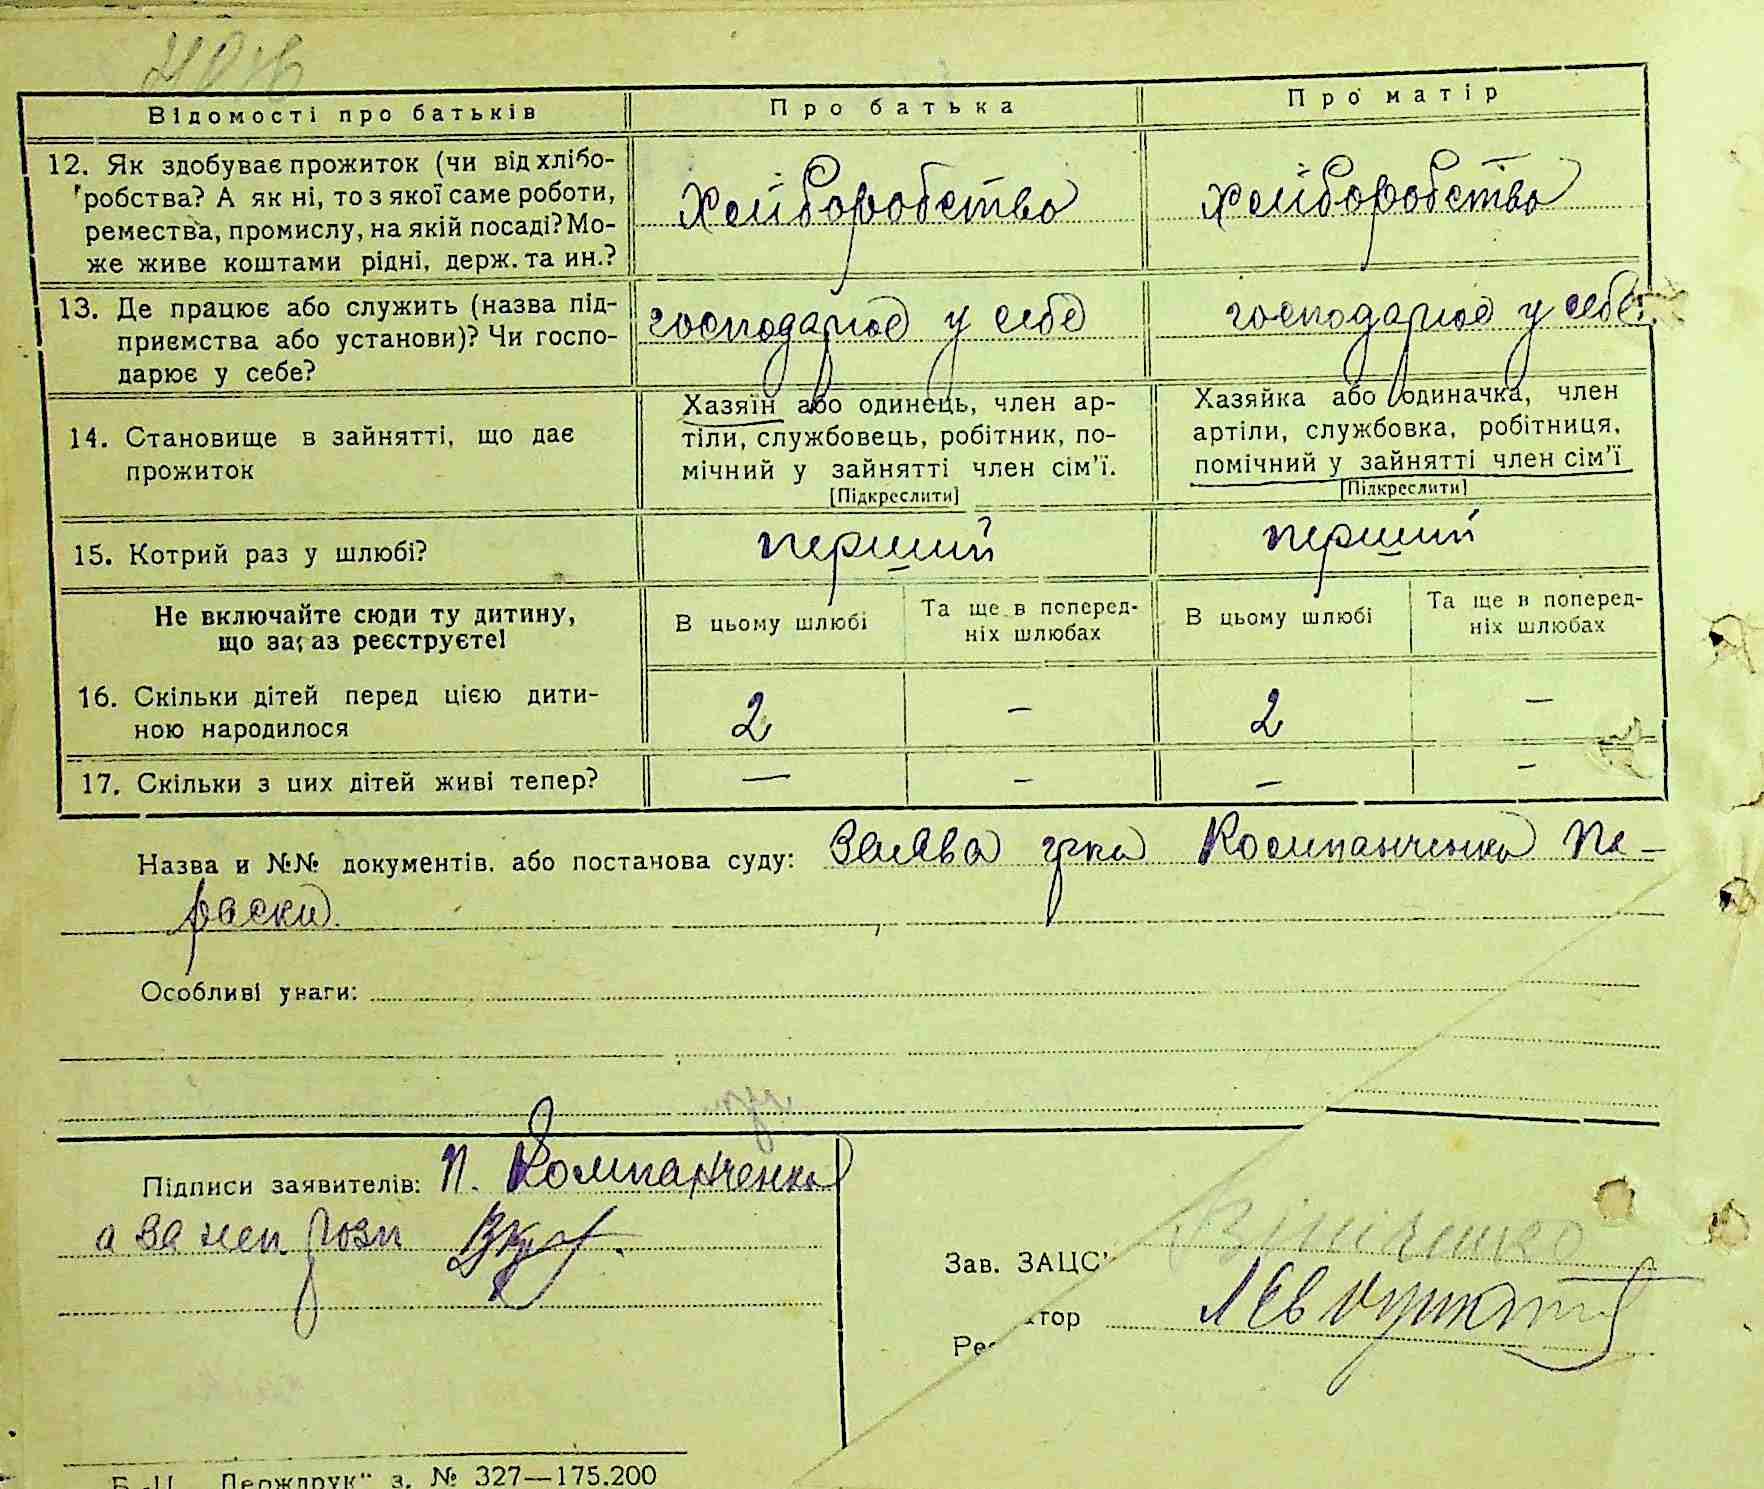 Відомості про батьків
Про батька
Про матір
12. Як здобуває прожиток (чи від хлібо-
робства? А як ні, то з якої саме роботи,
ремества, промислу, на якій посаді? Мо-
же живе коштами рідні, держ. та ин.?
хліборобство
хліборобство
13. Де працює або служить (назва під-
приємства або установи)? Чи госпо-
дарює у себе?
господарює у себе
господарює у себе
14. Становище в зайнятті, що дає
прожиток
Хазяїн або одинець, член ар-
тіли, службовець, робітник, по-
мічний у зайнятті член сім'ї.
[Підкреслити]
Хазяйка або одиначка, член
артіли, службовка, робітниця,
помічний у зайнятті член сім'ї
[Підкреслити]
15. Котрий раз у шлюбі?
перший
перший
Не включайте сюди ту дитину,
що зараз реєструєте!
В цьому шлюбі
Та ще в поперед-
ніх шлюбах
В цьому шлюбі
Та ще в поперед-
ніх шлюбах
16. Скільки дітей перед цією дити-
ною народилося
2 – 2 –
17. Скільки з цих дітей живі тепер?
— – – –
Назва и №№ документів, або постанова суду: Заява гр-ка Компанченка Па-
раски.
Особливі уваги:
Підписи заявителів: П. Компанченко
а за неп розп
Зав. ЗАЦС'
Ре тор
Б.-Ц. „Держдрук" з. № 327—175.200